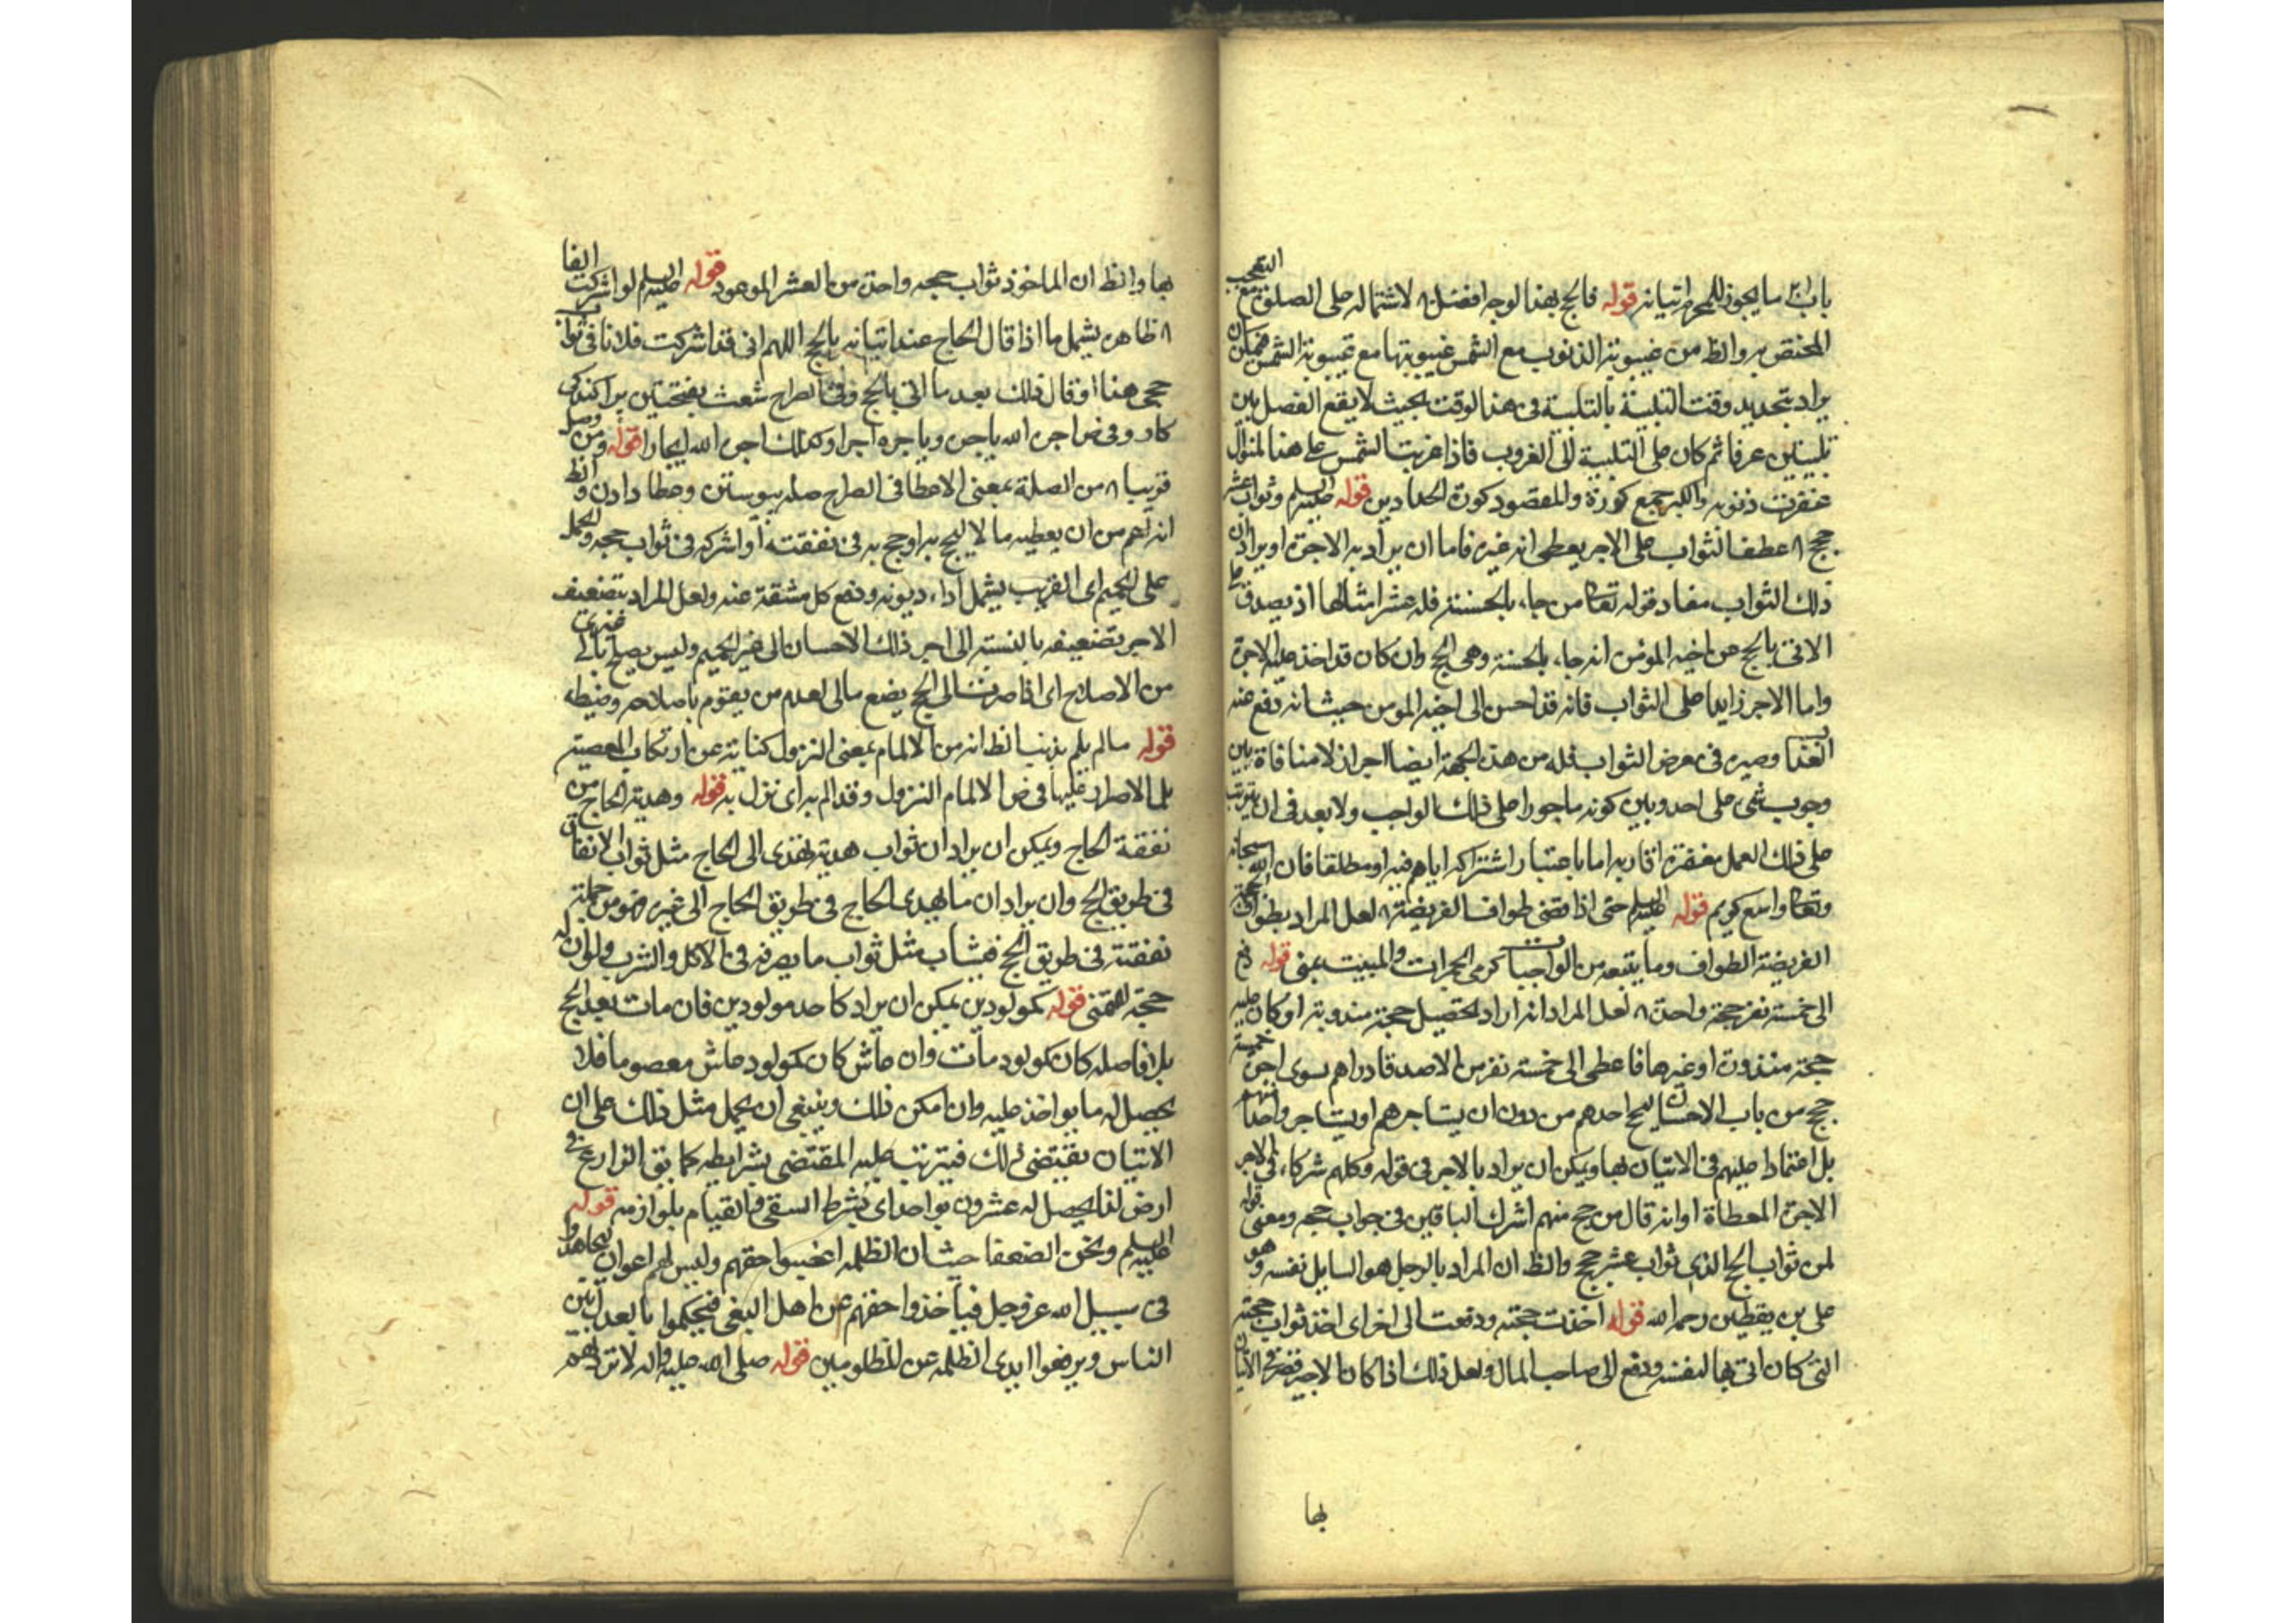 باب ما يجوز للمحرم اتيانه قوله فالحج بهذا الوجه افضل لاشتماله على الصلوة مع التعجب
المختص به والظ من غيبوبة الذنوب مع الشمس غيبوبتها مع غيبوبة الشمس فيمكن ان
يراد تجديد وقت التلبية بالتلبية في هذا الوقت بحيث لا يقع الفصل بين
تلبيتين عرفا ثم كان على التلبية الى الغروب فاذا غربت الشمس على هذا المنوال
غفرت ذنوبه والكير جمع كورة والمقصود كورة الحدادين قوله عليه السلم وثواب عشر
حجج عطف الثواب على الاجر يعطى انه غيره فاما ان يراد به الاجرة او يراد ان
ذلك الثواب مفاد قوله تعالى من جاء بالحسنة فله عشر امثالها اذ يصدق على
الاتى بالحج عن اخيه المؤمن انه جاء بالحسنة وهى الحج وان كان قد اخذ عليه الاجرة
واما الاجر زايدا على الثواب فانه قد احسن الى اخيه المومن حيث انه دفع عنه
العذاب وصيره فى معرض الثواب فله من هذه الجهة ايضا اجر اذ لا منافاة بين
وجوب شى على احد وبين كونه ماجورا على ذلك الواجب ولا بعد فى ان يترتب
على ذلك العمل مغفرة اقاربه اما باعتبار اشتراكه اياهم فيه او مطلقا فان الله سبحانه
وتعالى واسع كريم قوله عليه السلم حتى اذا قضى طواف الفريضة لعل المراد بطواف
الفريضة الطواف وما يتبعه من الواجبات كرمى الجمرات والمبيت بمنى قوله دفع
الى خمسة نفر حجة واحدة لعل المراد انه اراد تحصيل حجة مندوبة او كان عليه
حجة منذورة او غيرها فاعطى الى خمسة نفر من الاصدقا دراهم سوى اجرة خمسة
حجج من باب الاحسان ليحج احدهم من دون ان يستاجرهم او يستاجر واحدا منهم
بل اعتمادا عليهم فى الاتيان بها ويمكن ان يراد بالاجر فى قوله وكلهم شركاء فى الاجر
الاجرة المعطاة او انه قال من حج منهم اشرك الباقين فى جواب حجه ومعنى قوله
لمن ثواب الحج الذى ثواب عشر حجج والظ ان المراد بالرجل هو السايل نفسه وهو
على بن يقطين رحمه الله قوله اخذت حجته ودفعت الى اخر اى اخذ ثواب حجته
التى كان اتى بها لنفسه ودفع الى صاحب المال ولعل ذلك اذا كان الاجير قصر فى الاتيان
بها
بها والظ ان الماخوذ ثواب حجه واحدة من العشر الموعود قوله عليه السلم لو اشركت الفا
ظاهره يشمل ما اذا قال الحاج عند اتيانه بالحج اللهم انى قد اشركت فلانا فى ثواب
حجى هذا او قال ذلك بعد ما اتى بالحج وفى الصراح شعث بفتحتين پراكندگى
كار وفى ض اجره الله ياجره وياجره اجرا وكذلك اجره الله ايجارا قوله ومن وصل
قريبا من الصلة بمعنى الاعطا فى الصراح صله پيوستن وعطا دادن والظ
انه اعم من ان يعطيه مالا ليحج به او حج به فى نفقته او اشركه فى ثواب حجه والحمل
على الحميم اى القريب يشمل اداء ديونه ودفع كل مشقة عنه ولعل المراد بتضعيف
الاجر تضعيفه بالنسبة الى اجر ذلك الاحسان الى غير الحميم وليس يصلح مالى غيرى
من الاصلاح اى اذا صرفت الى الحج يضع مالى لعدم من يقوم باصلاحه وضبطه
قوله ما لم يلم بذنب الظ انه من الالمام بمعنى النزول كناية عن ارتكاب المعصية
بلا اصرار عليها فى ض الالمام النزول وقد الم به اى نزل به قوله وهدية الحاج من
نفقة الحاج ويمكن ان يراد ان ثواب هدية تهدى الى الحاج مثل ثواب الانفاق
فى طريق الحج وان يراد ان ما يهدى الحاج فى طريق الحاج الى غيره فهو من جملة
نفقته فى طريق الحج فيثاب مثل ثواب ما يصرفه فى الاكل والشرب والمؤن له
حجة قوله كمولودين يمكن ان يراد كاحد مولودين فان مات بعد الحج
بلا فاصله كان كمولود مات وان عاش كان كمولود عاش معصوما فلا
يحصل له ما يواخذ عليه وان امكن ذلك وينبغى ان يحمل مثل ذلك على ان
الاتيان يقتضى ذلك فيترتب عليه المقتضى بشرايطه كما يق الزارع فى
ارض كذا يحصل له عشرون بواحد اى بشرط السقى والقيام بلوازمه قوله
عليه السلم ونحن الضعفا حيث ان الظلمه اغصبوا حقهم وليس لهم اعوان ليجاهدوا
فى سبيل الله عز وجل فياخذوا حقهم عن اهل البغى فيحكموا بالعدل بين
الناس ويرفعوا ايدى الظلمه عن المظلومين قوله صلى الله عليه واله لا تردهم